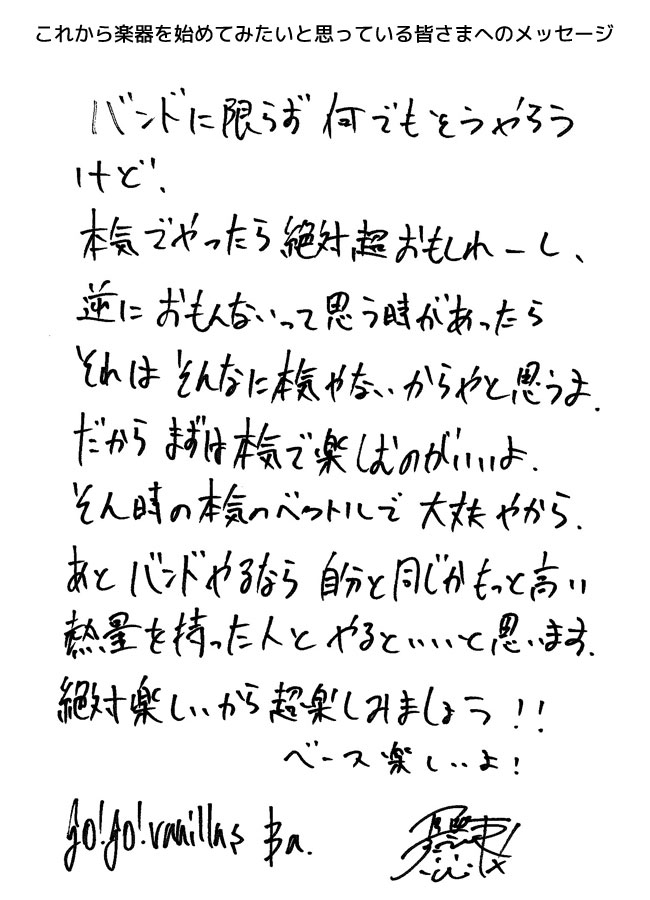 これから楽器を始めてみたいと思っている皆さまへのメッセージ
バンドに限らず何でもそうやろう
けど、
本気でやったら絶対超おもしれーし、
逆におもんないって思う時があったら
それはそんなに本気やないからやと思うよ.
だからまずは本気で楽しむのがいいよ.
そん時の本気のベクトルで大丈夫やから.
あとバンドやるなら自分と同じかもっと高い
熱量を持った人とやるといいと思います.
絶対楽しいから超楽しみましょう!!
ベース楽しいよ!
go!go!vanillas Ba.